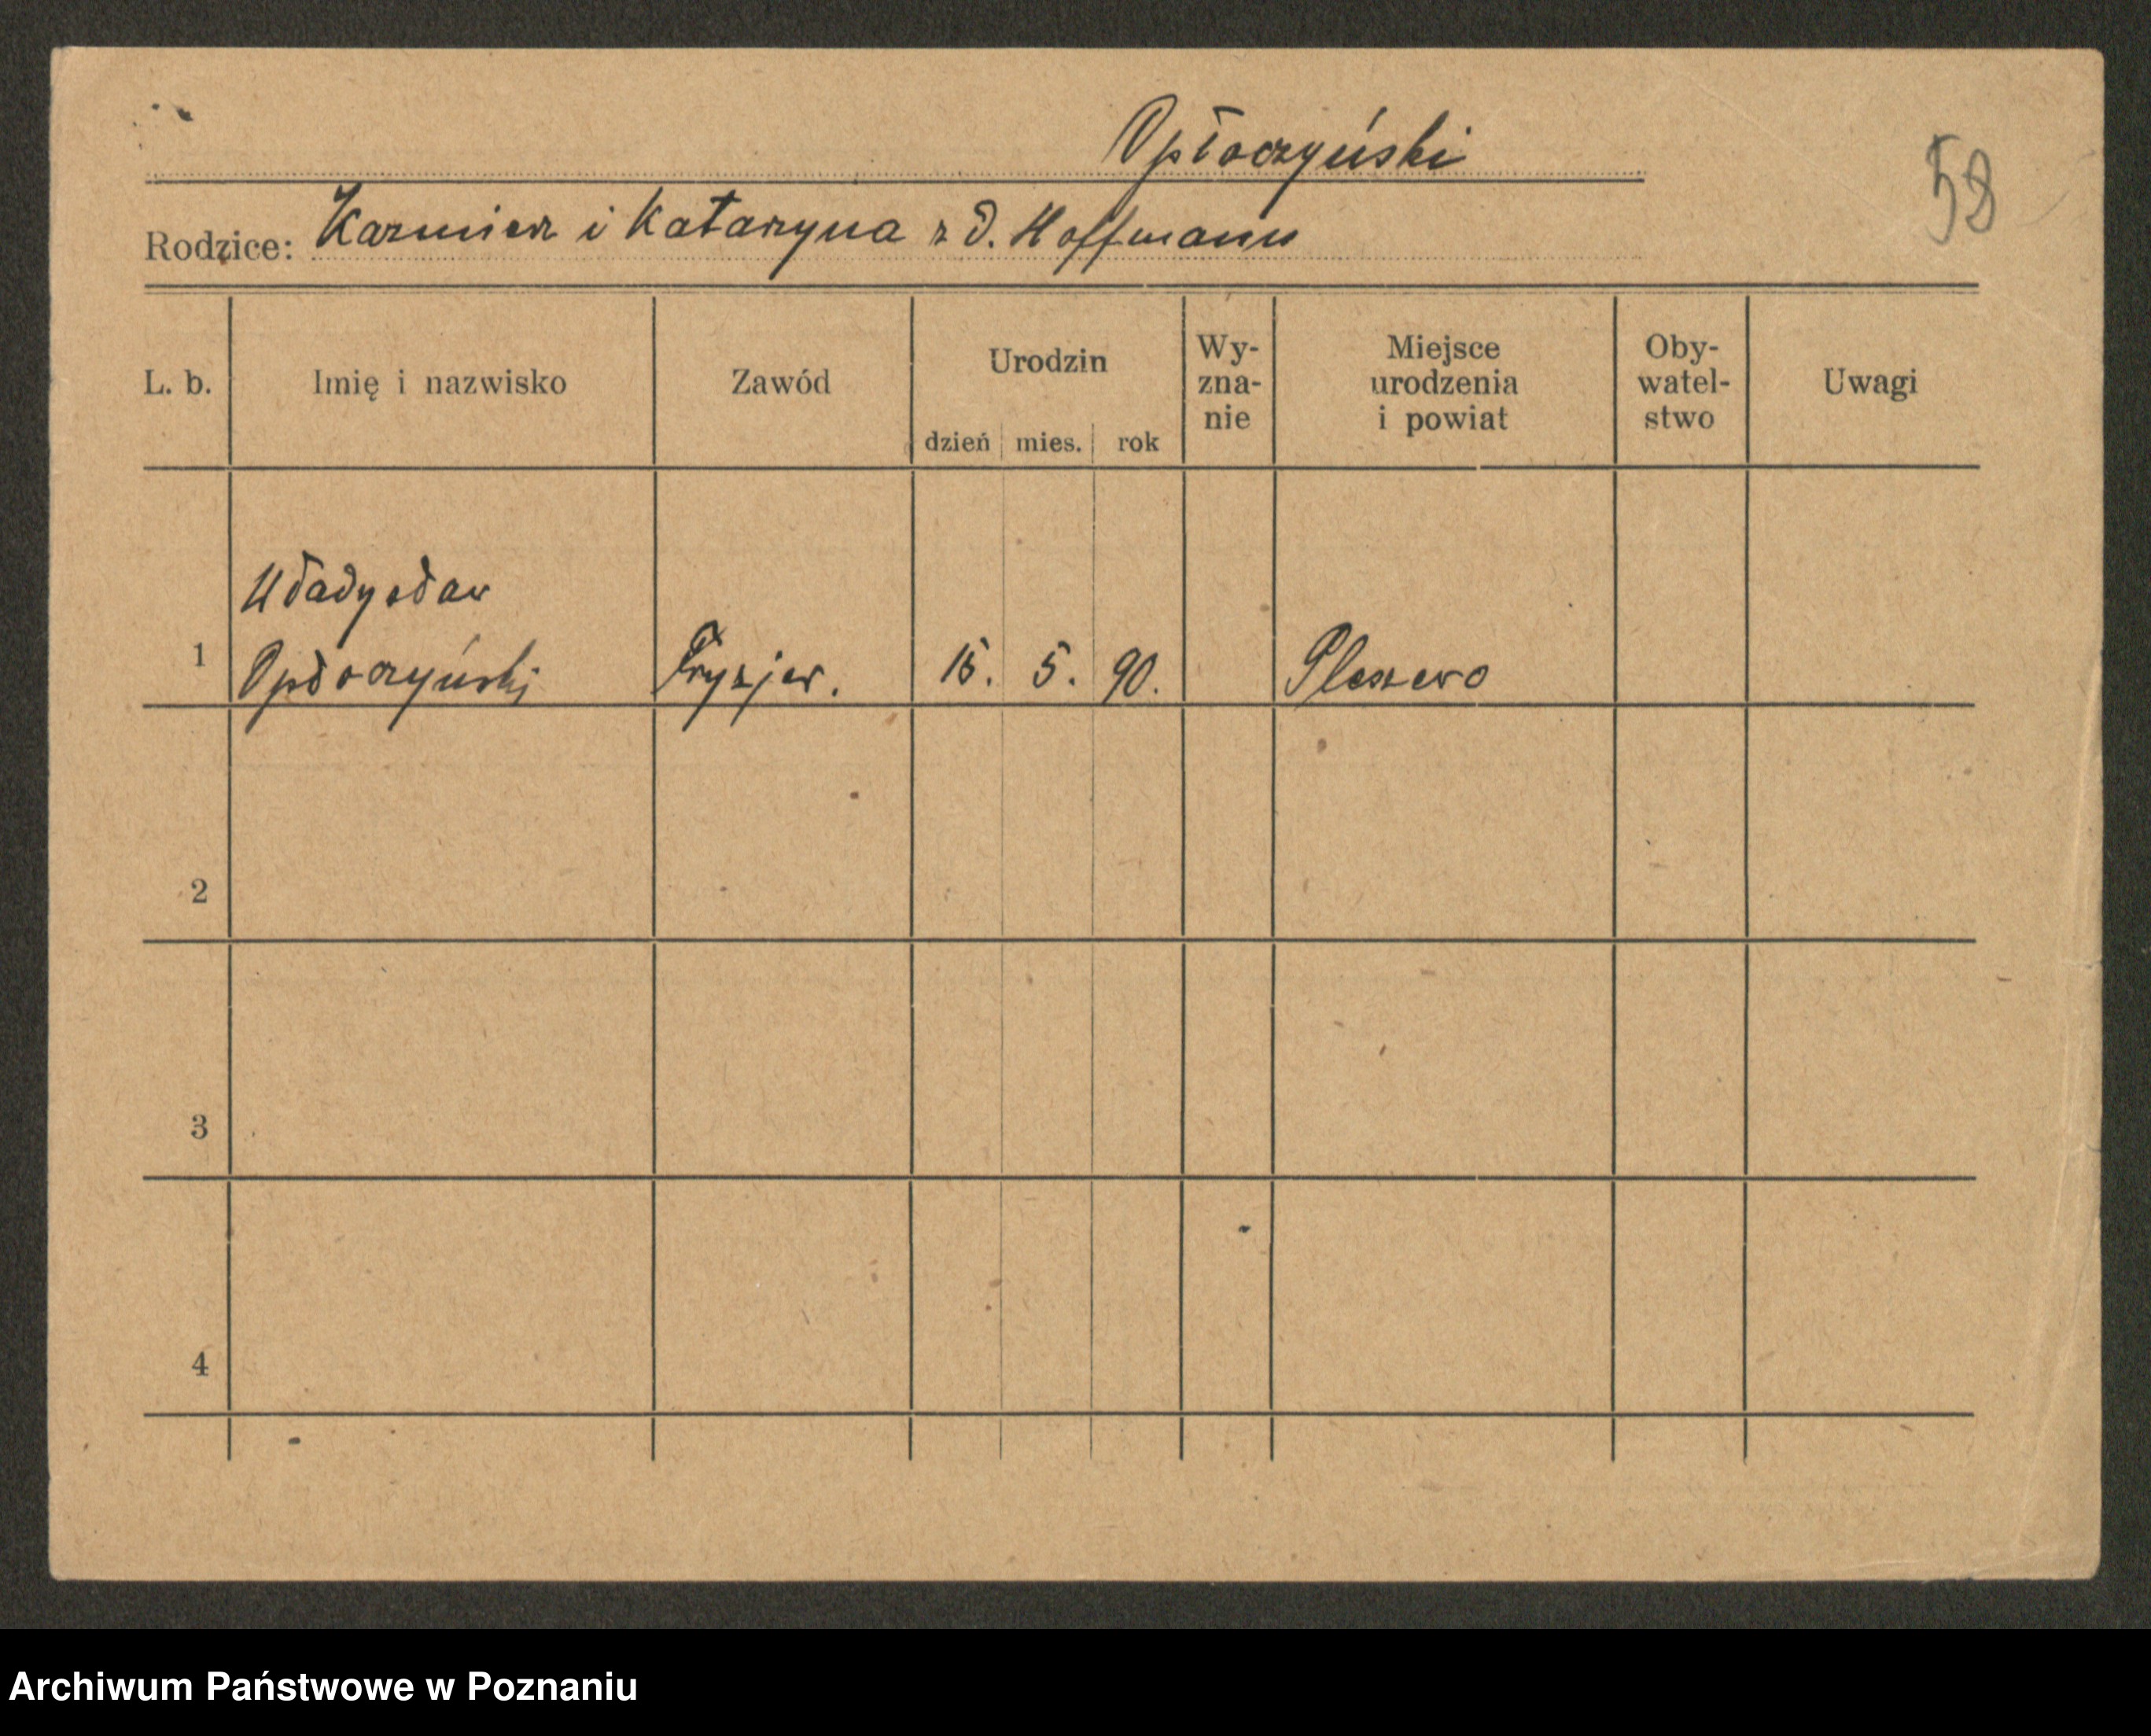 Opłoczyński
58
Rodzice: Kazmierz i Katarzyna z d. Hoffmann
L. b. Imię i nazwisko Zawód Urodzin dzień mies. rok Wy-zna-nie Miejsce urodzenia i powiat Oby-watel-stwo Uwagi
Władysław
1 Opłoczyński Fryzjer. 15. 5. 90. Pleszewo
2
3
4
Archiwum Państwowe w Poznaniu